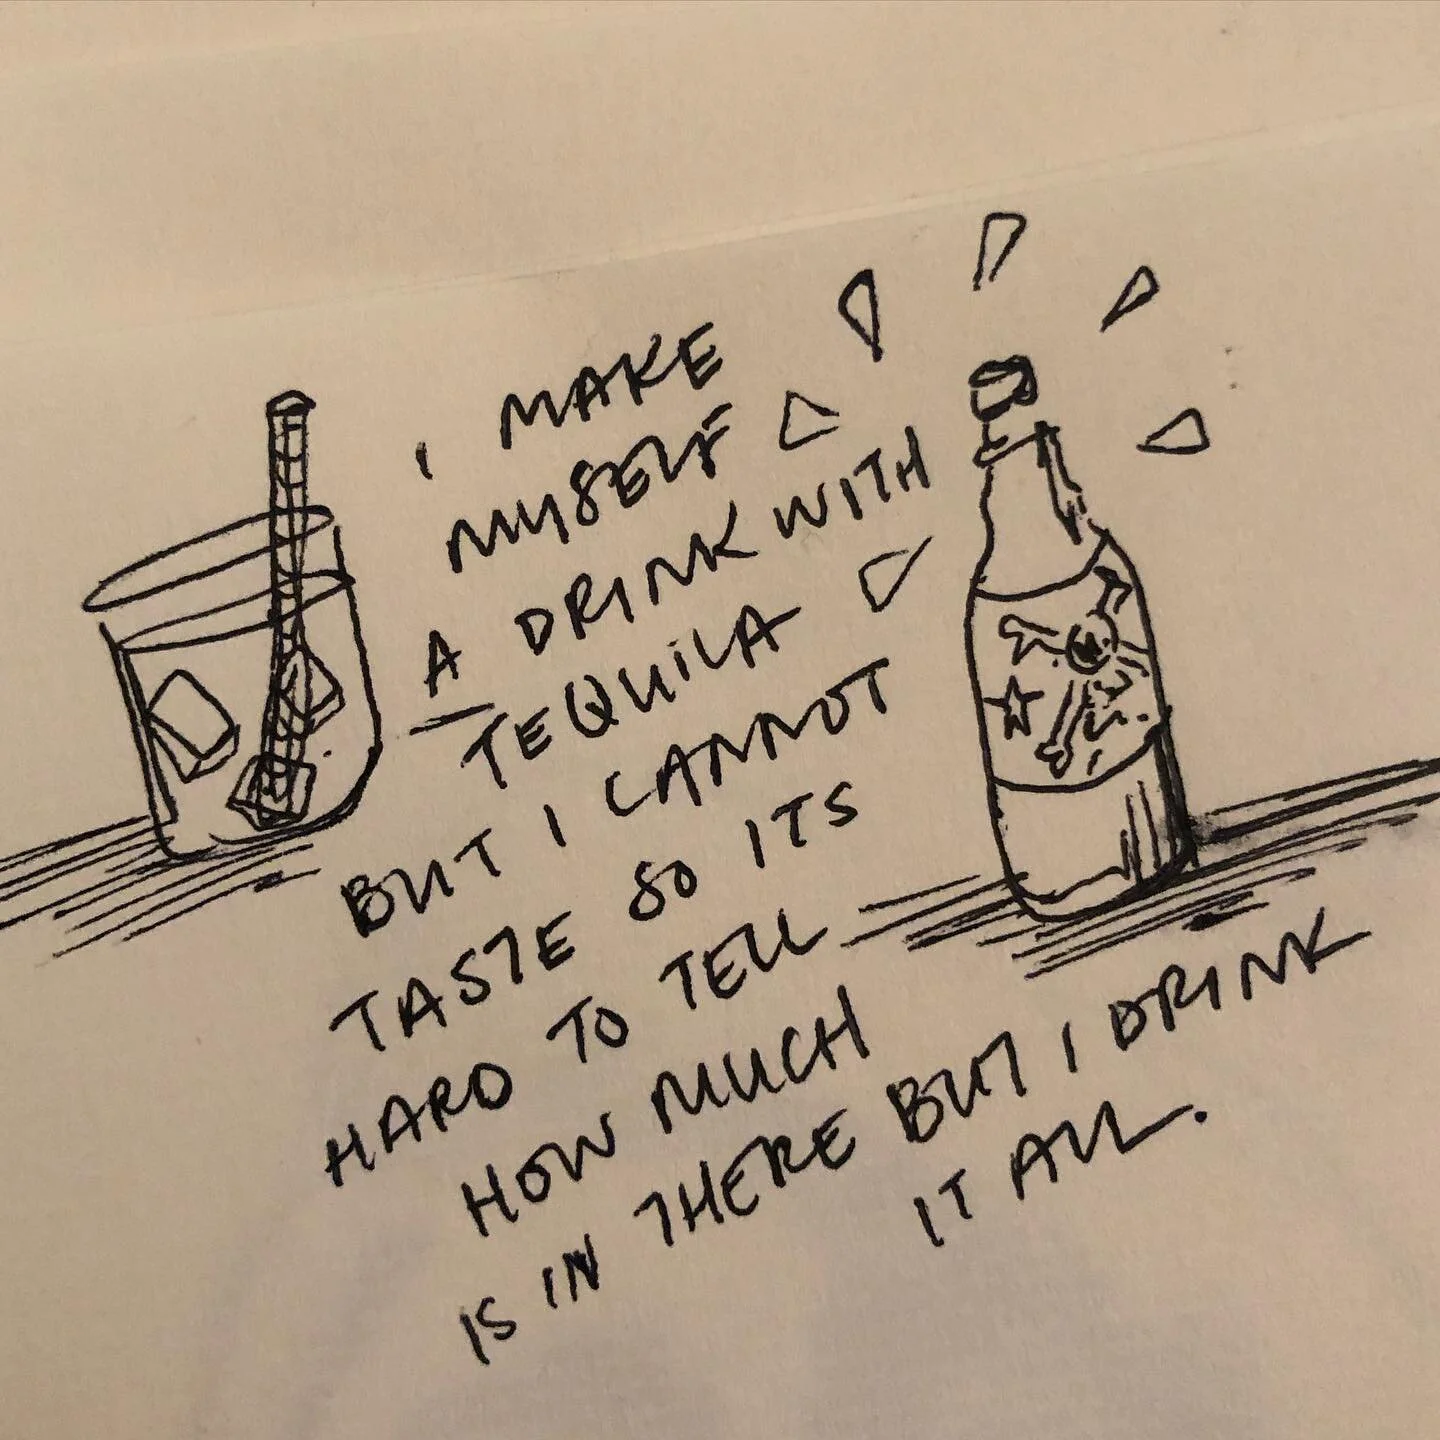 I MAKE
MYSELF
A DRINK WITH
TEQUILA
BUT I CANNOT
TASTE SO ITS
HARD TO TELL
HOW MUCH
IS IN THERE BUT I DRINK
IT ALL.